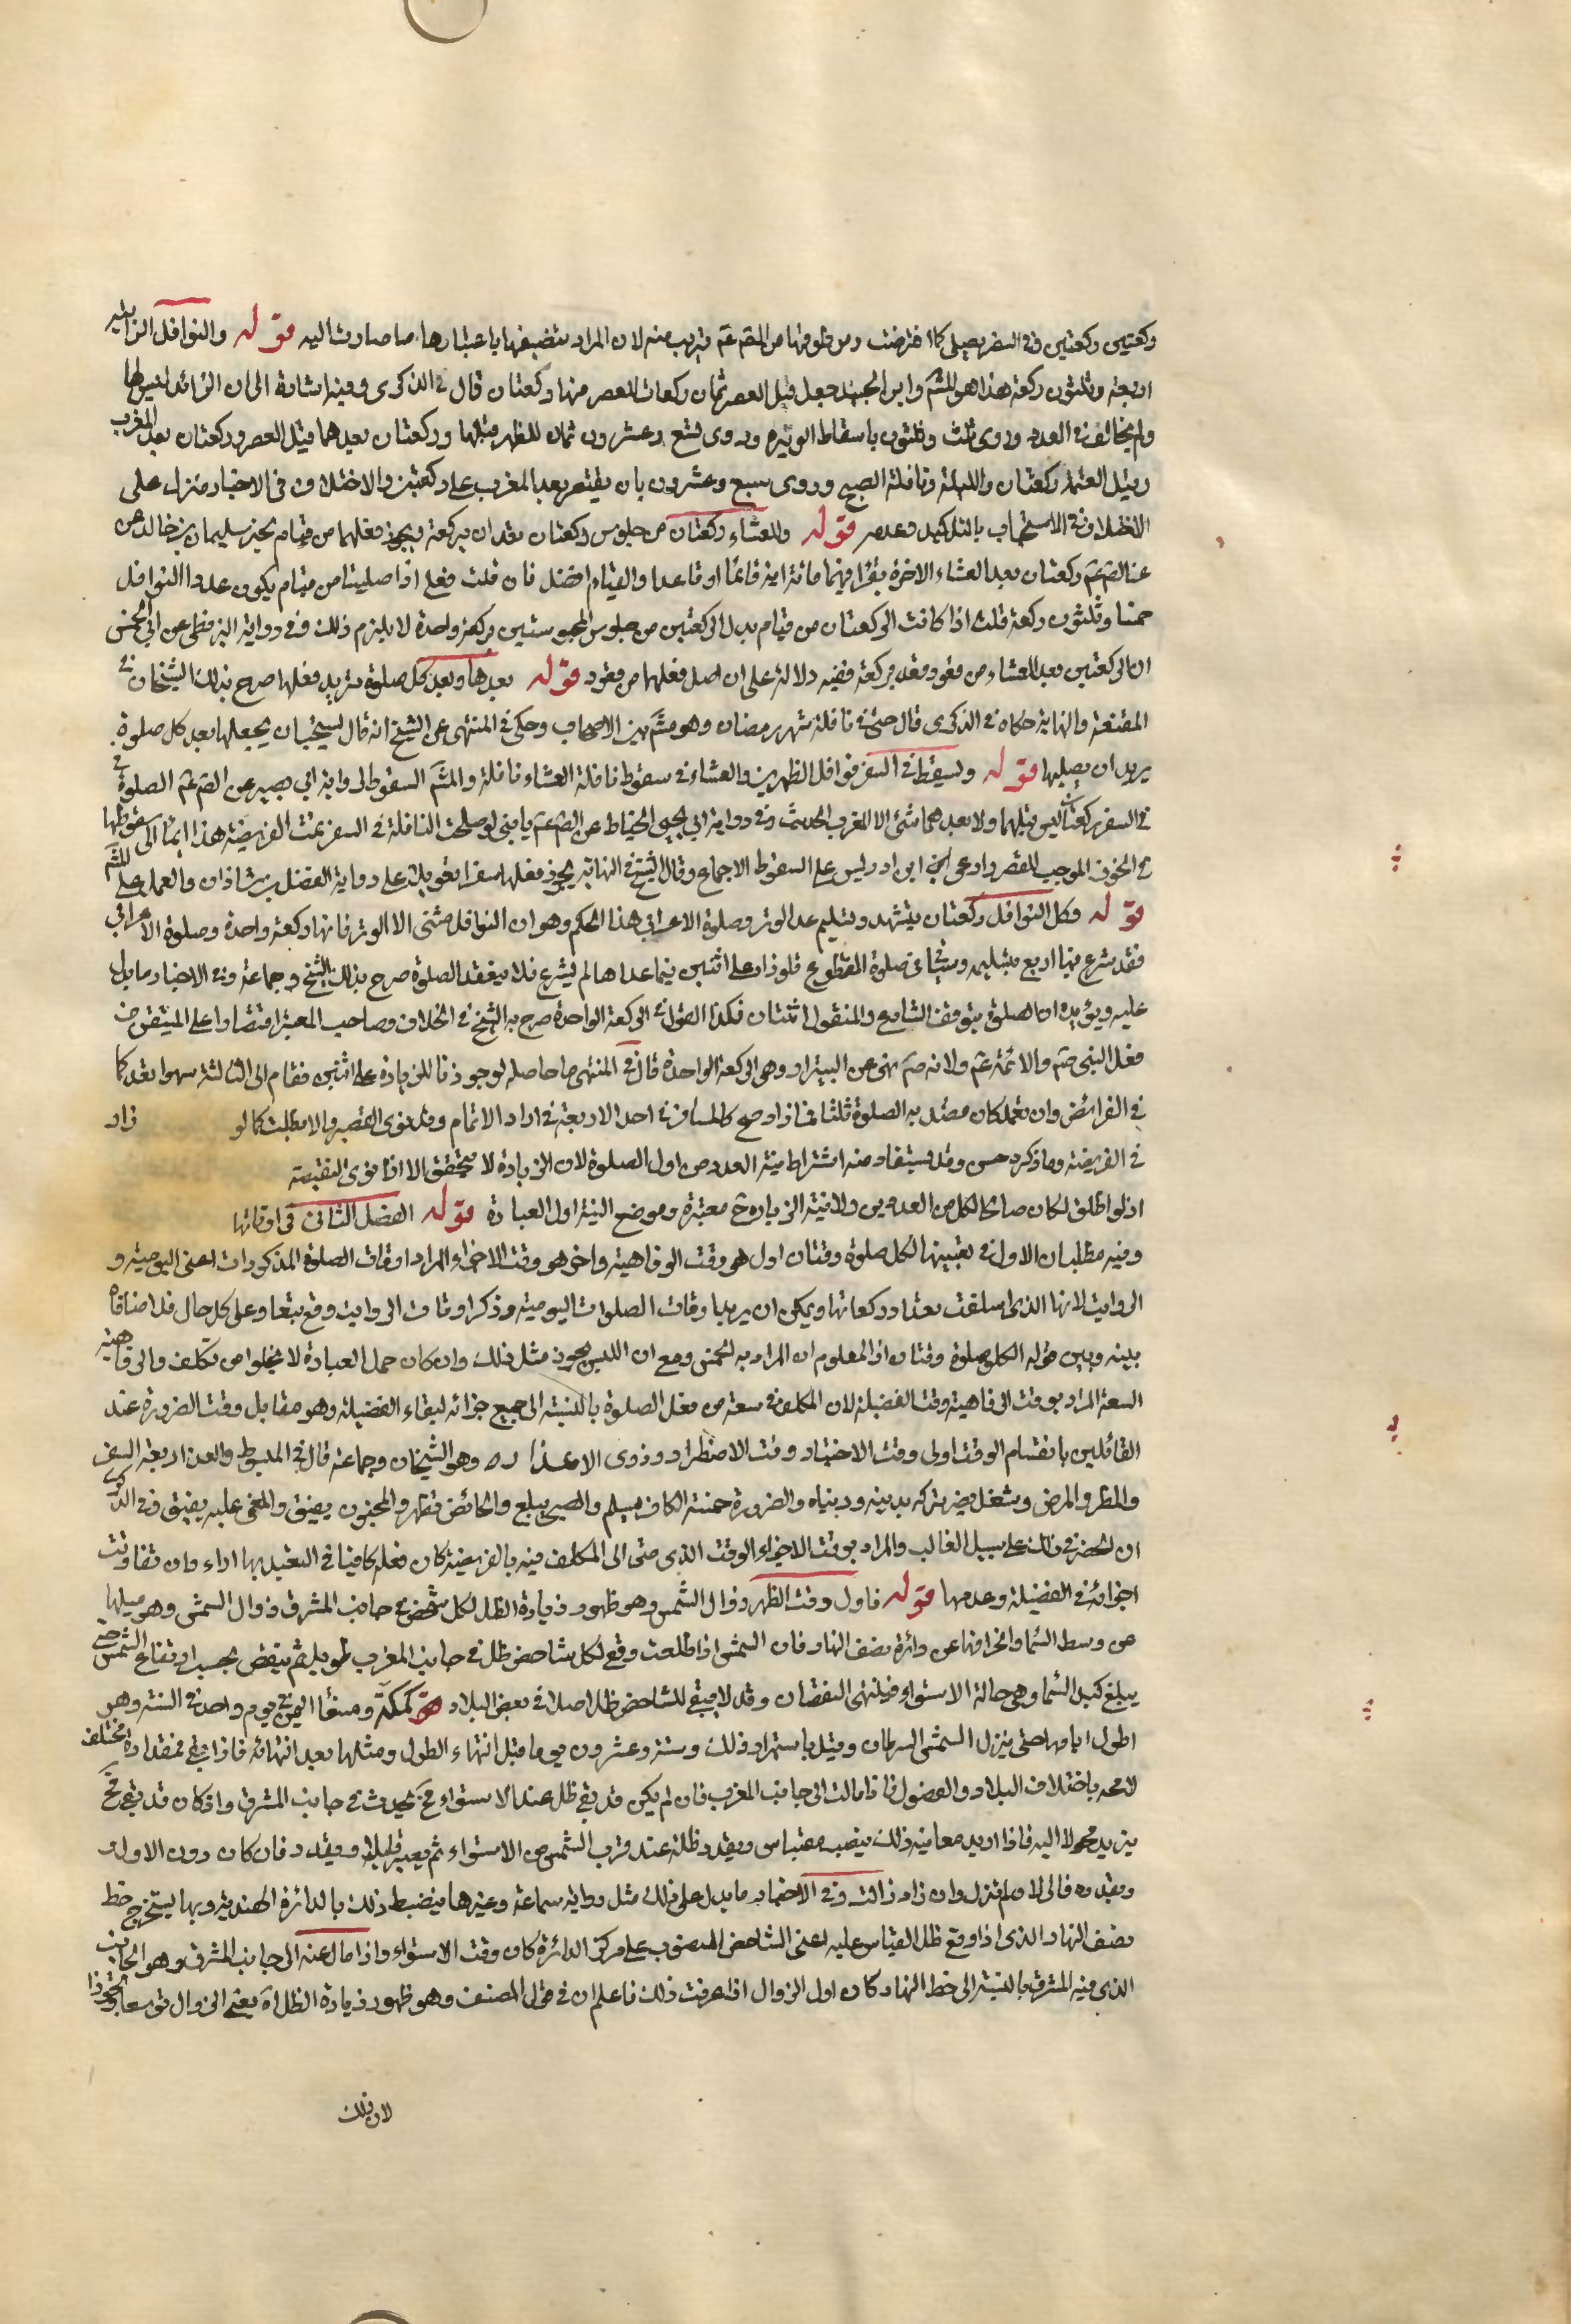 ركعتين ركعتين وفي السفر يصلي كما فرضت ومن قولهما من المقم عم قريب منه لان المراد بتضيفها باعتبارها ما صارت اليه قوله والنوافل الراتبة
اربعة وثلثون ركعة هذا هو المشهم وابن الجنيد جعل قبل العصر ثمان ركعات للعصر منها ركعتان قال في الذكرى وفيه اشارة الى ان الزائد ليس لها
ولم يخالف في العدد وروى ثلث وثلثون باسقاط الوتيرة وروى تسع وعشرون ثمان للظهر قبلها وركعتان بعدهما قبل العصر وركعتان بعد المغرب
وقبل العتمة ركعتان والليلة ونافلة الصبح وروى سبع وعشرون بان يقتصر بعد المغرب على ركعتين والاختلاف في الاخبار منزل على
الاختلاف في الاستحباب بالتاكيد وعدمه قوله وللعشاء ركعتان من جلوس ركعتان تعدان بركعة ويجوز فعلهما من قيام لخبر سليمان بن خالد عن
عن الصم عم ركعتان بعد العشاء الاخرة يقرا فيهما مائة اية قائما او قاعدا والقيام افضل فان قلت فعلى اذا صليتا من قيام يكون عدد النوافل
خمسا وثلثون ركعة قلت اذا كانت الركعتان من قيام بدل الركعتين من جلوس المحبوستين بركعة واحدة لا يلزم ذلك وفي رواية البزنطي عن ابي الحسن
ان الركعتين بعد العشاء من قعود تعد بركعة ففيه دلالة على ان اصل فعلهما من قعود قوله بعدها وبعد كل صلوة يريد فعلها صرح بذلك الشيخان في
المقنعة والنهاية حكاه في الذكرى قال حتى في نافلة شهر رمضان وهو مشم بين الاصحاب وحكى في المنتهى عن الشيخ انه قال يستحب ان يجعلها بعد كل صلوة
يريد ان يصليها قوله ويسقط في السفر نوافل الظهرين والعشاء في سقوط نافلة العشاء نافلة والمشم السقوط لرواية ابي بصير عن الصم عم الصلوة في
في السفر ركعتان ليس قبلهما ولا بعدهما شئ الا المغرب الحديث وفي رواية ابي يحيى الحناط عن الصم عم يا بني لو صلحت النافلة في السفر تمت الفريضة هذا ايماء الى سقوطها
في الخوف الموجب للقصر وادعى ابن ادريس على السقوط الاجماع وقال الشيخ في النهاية يجوز فعلها سفرا تعويلا على رواية الفضل بن شاذان والعمل على المشم
قوله وكل النوافل ركعتان بتشهد وتسليم عدا الوتر وصلوة الاعرابي هذا الحكم وهو ان النوافل مثنى الا الوتر فانها ركعة واحدة وصلوة الاعرابي
فقد شرع فيها اربع بتسليمة وسيجئ في صلوة التطوع فلو زاد على اثنتين فيما عداها لم يشرع فلا ينعقد الصلوة صرح بذلك الشيخ وجماعة وفي الاخبار ما يدل
عليه ويؤيده ان الصلوة يتوقف الشارع والمنقول اثنتان فكذا القول في الركعة الواحدة صرح به الشيخ في الخلاف وصاحب المعتبر اقتصارا على المتيقن من
فعل النبي صم والائمة عم ولانه صم نهى عن البتيراء وهي الركعة الواحدة قال في المنتهى ما حاصله لو جوزنا الزيادة على اثنتين فقام الى الثالثة سهوا يقعد كما
في الفرائض وان تعمد كان قصد به الصلوة ثلثا فما زاد صح كالمسافر في احد الاربعة في اراد الاتمام وقد نوى القصر والا بطلت كما لو زاد
في الفريضة وما ذكره حسن وقد يستفاد منه اشتراط نية العدد من اول الصلوة لان الزيادة لا يتحقق الا اذا نوى النقيصة
اذ لو اطلق لكان صالحا لكل من العددين ولا نية الزيادة ح معتبرة وموضع النية اول العبادة قوله الفصل الثاني في اوقاتها
وفيه مطلبان الاول في تعيينها لكل صلوة وقتان اول هو وقت الرفاهية واخر هو وقت الاجزاء المراد اوقات الصلوة المذكورات اعني اليومية و
الرواتب لانها الذي اسلفت بعداد ركعاتها ويمكن ان يريد اوقات الصلوات اليومية وذكر اوقات الرواتب وقع تبعا وعلى كل حال فلا منافاة
بينه وبين قوله لكل صلوة وقتان اذ المعلوم ان المراد به الخمس ومع امن اللبس يجوز مثل ذلك وان كان حمل العبادة لا يخلوا من تكلف والرفاهية
السعة المراد بوقت الرفاهية وقت الفضيلة لان المكلف في سعة من فعل الصلوة بالنسبة الى جميع اجزائه لبقاء الفضيلة وهو مقابل وقت الضرورة عند
القائلين بانقسام الوقت اولى وقت الاختيار وقت الاضطرار وذوى الاعذار وهو الشيخان وجماعة قال في المبسوط والعذر اربعة السفر
والمطر والمرض وشغل يضر تركه بدينه ودنياه والضرورة خمسة الكافر يسلم والصبي يبلغ والحائض تطهر والمجنون يفيق والمغمى عليه يفيق وفي الذكرى
ان الحصر في ذلك على سبيل الغالب والمراد بوقت الاجزاء الوقت الذي متى اتى المكلف فيه بالفريضة كان فعله كافيا في التعبد بها اداء وان تفاوتت
اجزائه في الفضيلة وعدمها قوله فاول وقت الظهر زوال الشمس وهو ظهور زيادة الظل لكل شخص في جانب المشرق زوال الشمس وهو ميلها
عن وسط السماء وانحرافها عن دائرة نصف النهار فان الشمس اذا طلعت وقع لكل شاخص ظل في جانب المغرب طويل ثم ينقص بحسب ارتفاع الشمس حتى
يبلغ كبد السماء وهي حالة الاستواء فينتهى النقصان وقد لا يبقى للشاخص ظل اصلا في بعض البلاد كمكة وصنعاء اليمن في يوم واحد في السنة وهو
اطول ايامها حتى ينزل الشمس السرطان وقيل باستمرار ذلك وستة وعشرون يوما قبل انتهاء الطول ومثلها بعد انتهائه فاذا بقي فمقداره مختلف
لا محه باختلاف البلاد والفصول فاذا مالت الى جانب المغرب فان لم يكن قد بقي ظل عند الاستواء فح يحدث في جانب المشرق واذ كان قد بقي فح
يزيد محولا اليه فاذا اريد معاينة ذلك ينصب مقياس ويقدر ظله عند قرب الشمس من الاستواء ثم يصبر قليلا ويقدر فان كان دون الاول او
وبقدره فالى الان لم تزل وان زاد زالت وفي الاخبار ما يدل على ذلك مثل رواية سماعة وغيرها وينضبط ذلك بالدائرة الهندية وبها يستخرج خط
نصف النهار الذي اذا وقع ظل المقياس عليه اعني الشاخص المنصوب على مركز الدائرة كان وقت الاستواء واذا مال عنه الى جانب المشرق وهو الجانب
الذي فيه المشرق بالنسبة الى خط النهار كان اول الزوال اذا عرفت ذلك فاعلم ان في قول المصنف وهو ظهور زيادة الظل اه يعني الزوال توسعا وتجوزا
لان ذلك